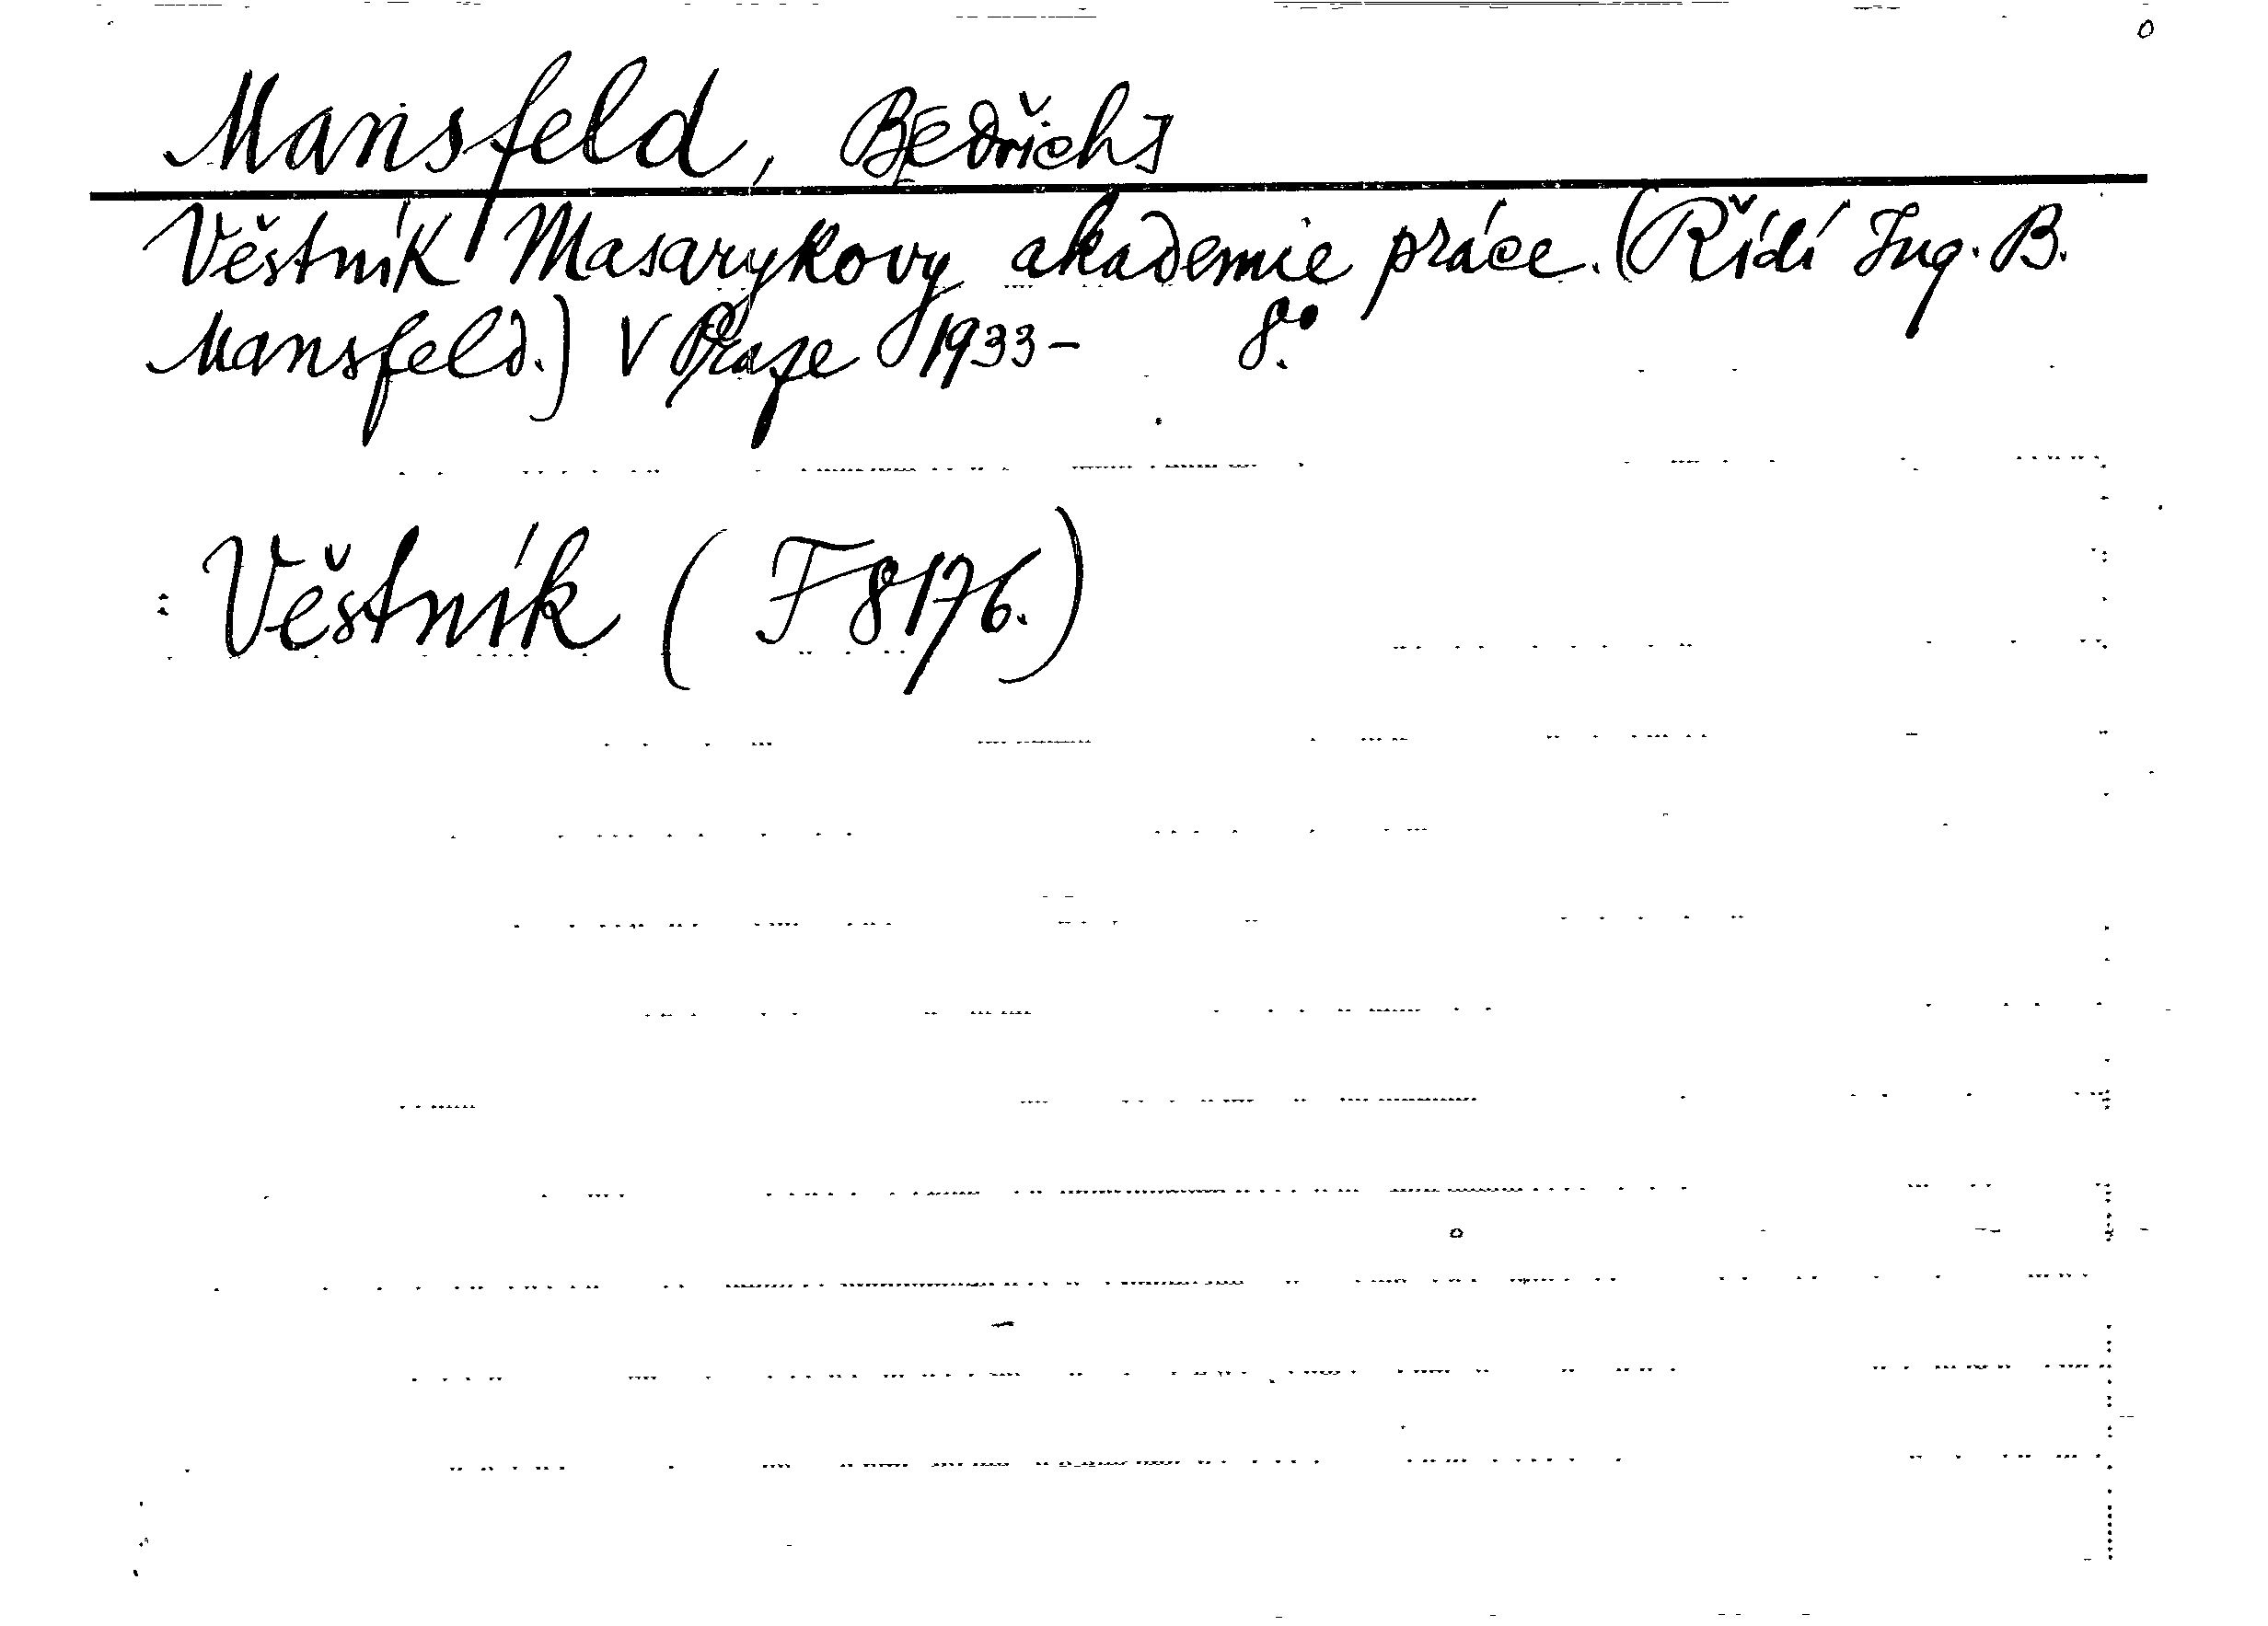 Mansfeld, B[edřich]
Věstník Masarykovy akademie práce. (Řídí Ing. B.
Mansfeld.) V Praze 1933- 8°.
Věstník (F 8176.)